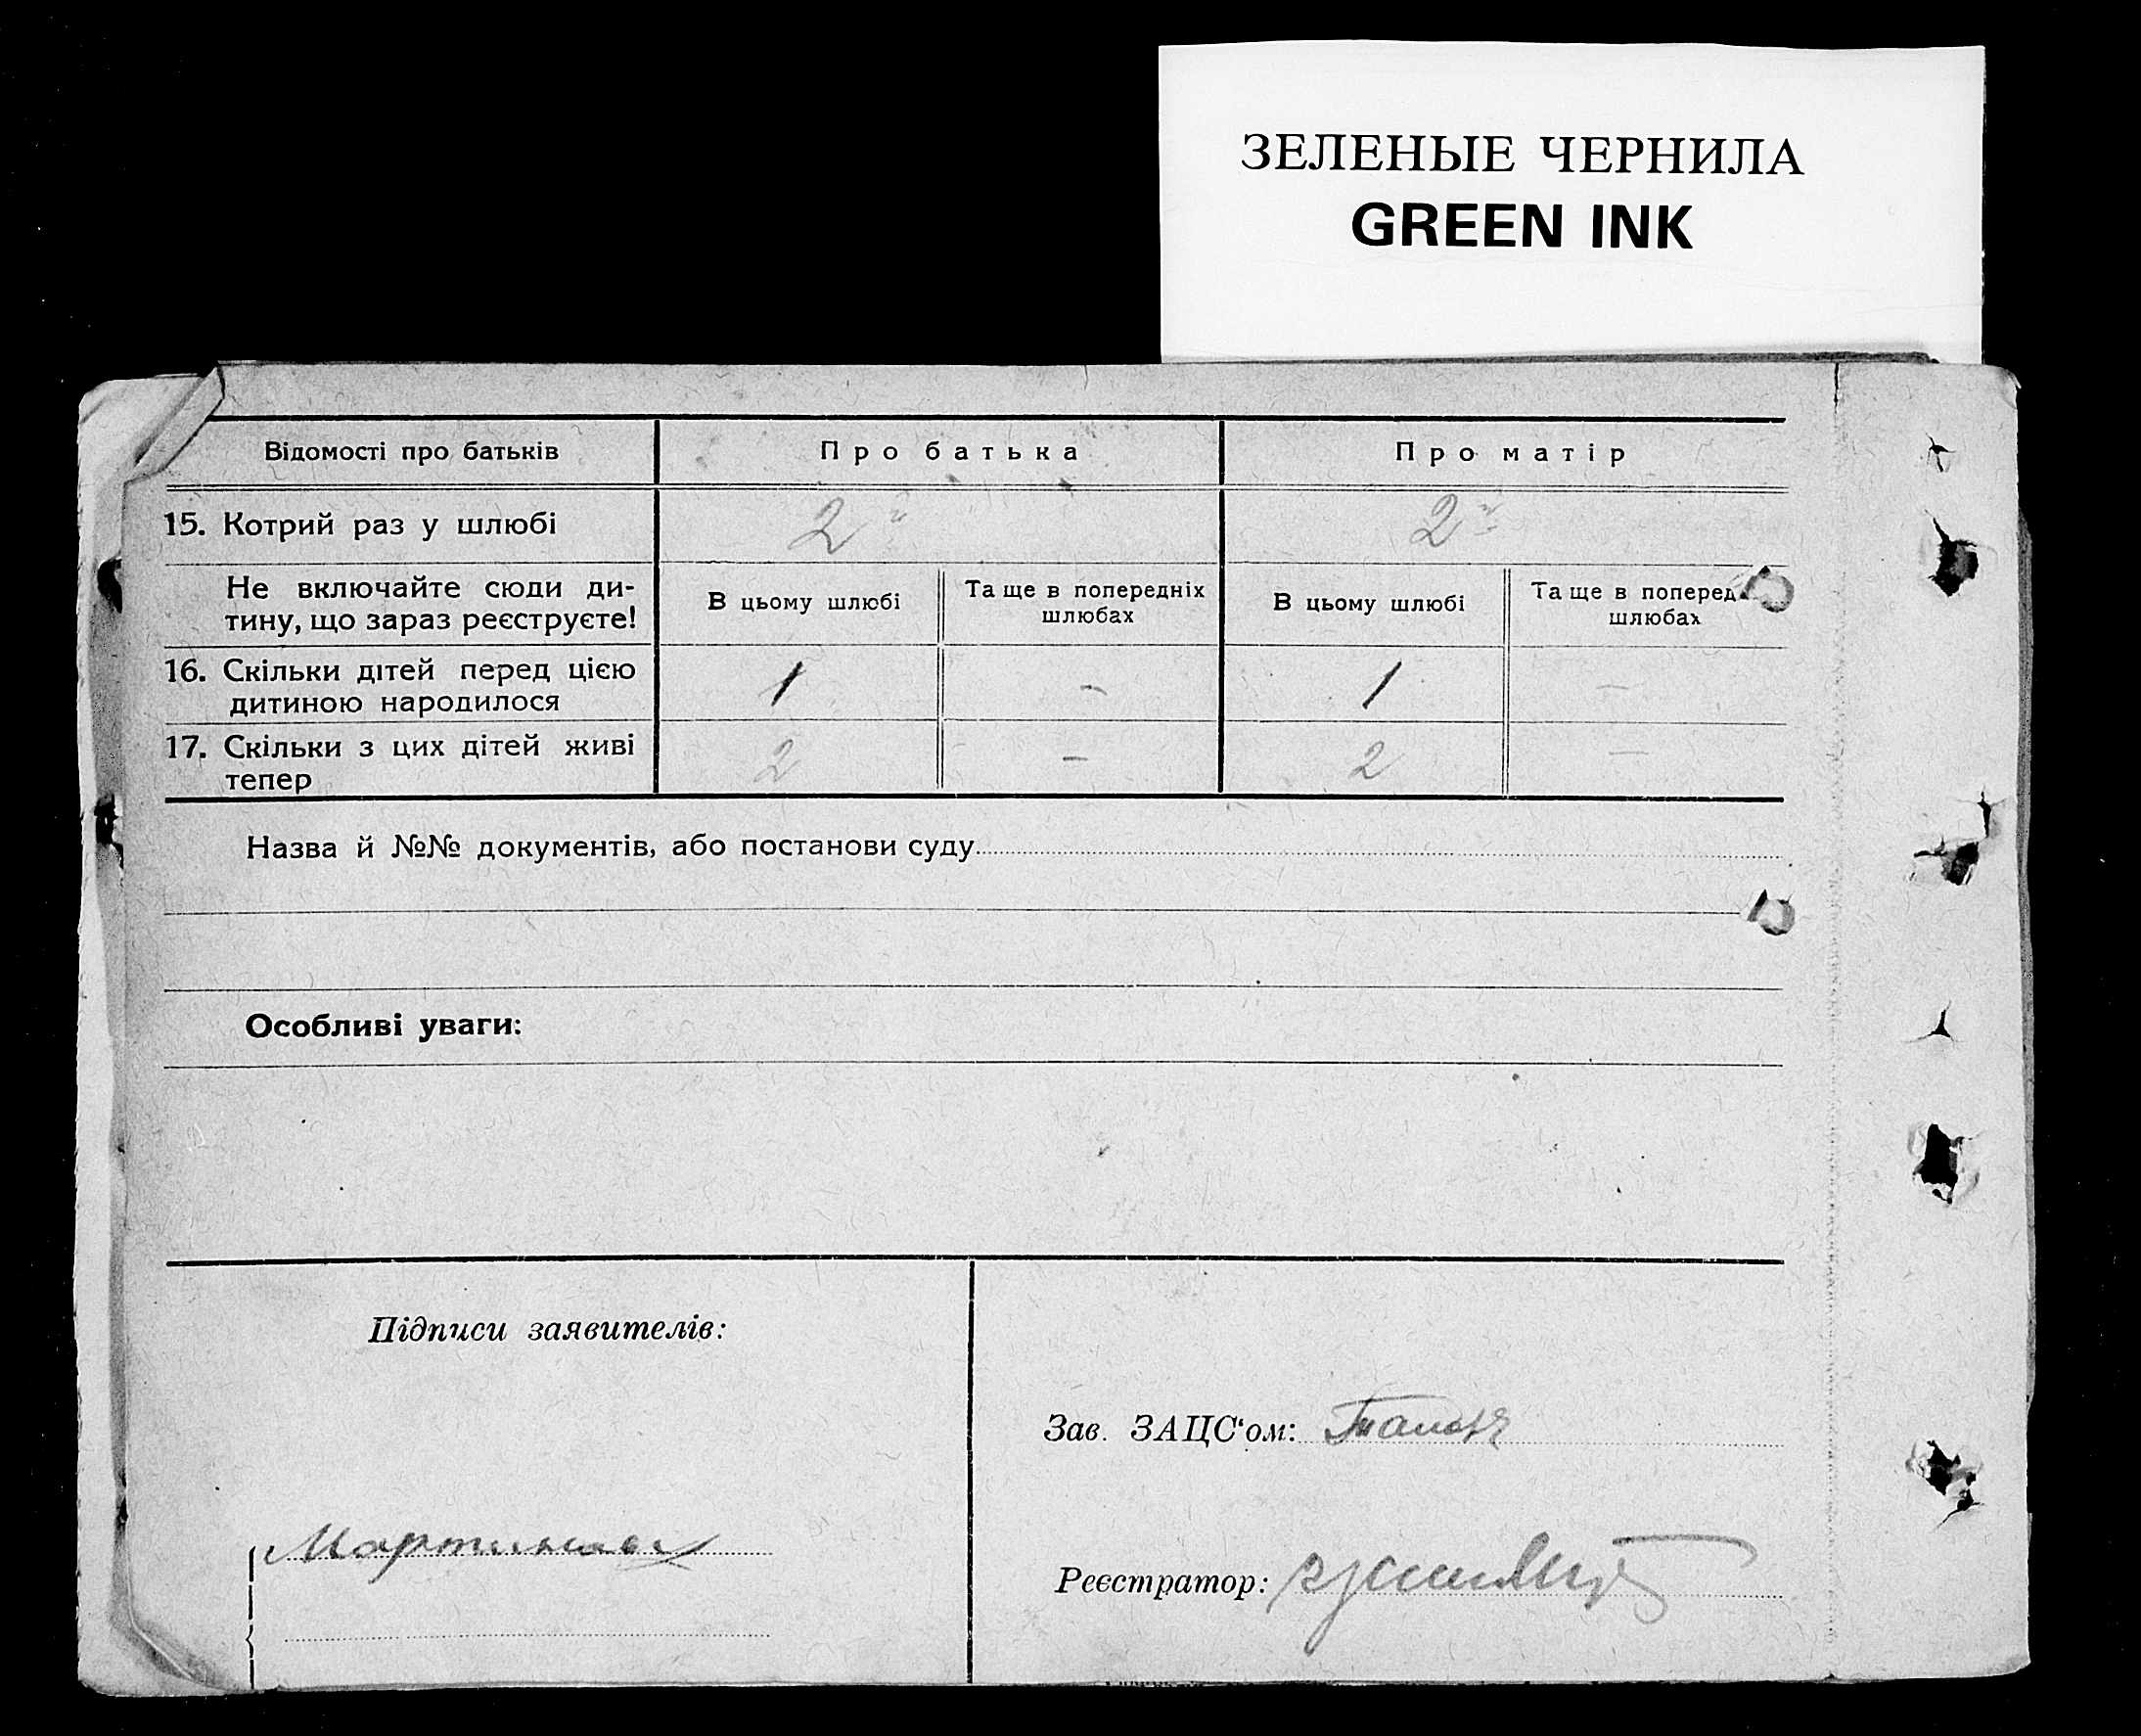 ЗЕЛЕНЫЕ ЧЕРНИЛА
GREEN INK
Відомості про батьків Про батька Про матір
15. Котрий раз у шлюбі 2й 2й
Не включайте сюди ди-
тину, що зараз реєструєте!
В цьому шлюбі Та ще в попередніх
шлюбах
В цьому шлюбі Та ще в поперед
шлюбах
16. Скільки дітей перед цією
дитиною народилося
1 - 1 -
17. Скільки з цих дітей живі
тепер
2 - 2 -
Назва й №№ документів, або постанови суду
Особливі уваги:
Підписи заявителів:
Зав. ЗАЦС'ом:
Реєстратор: